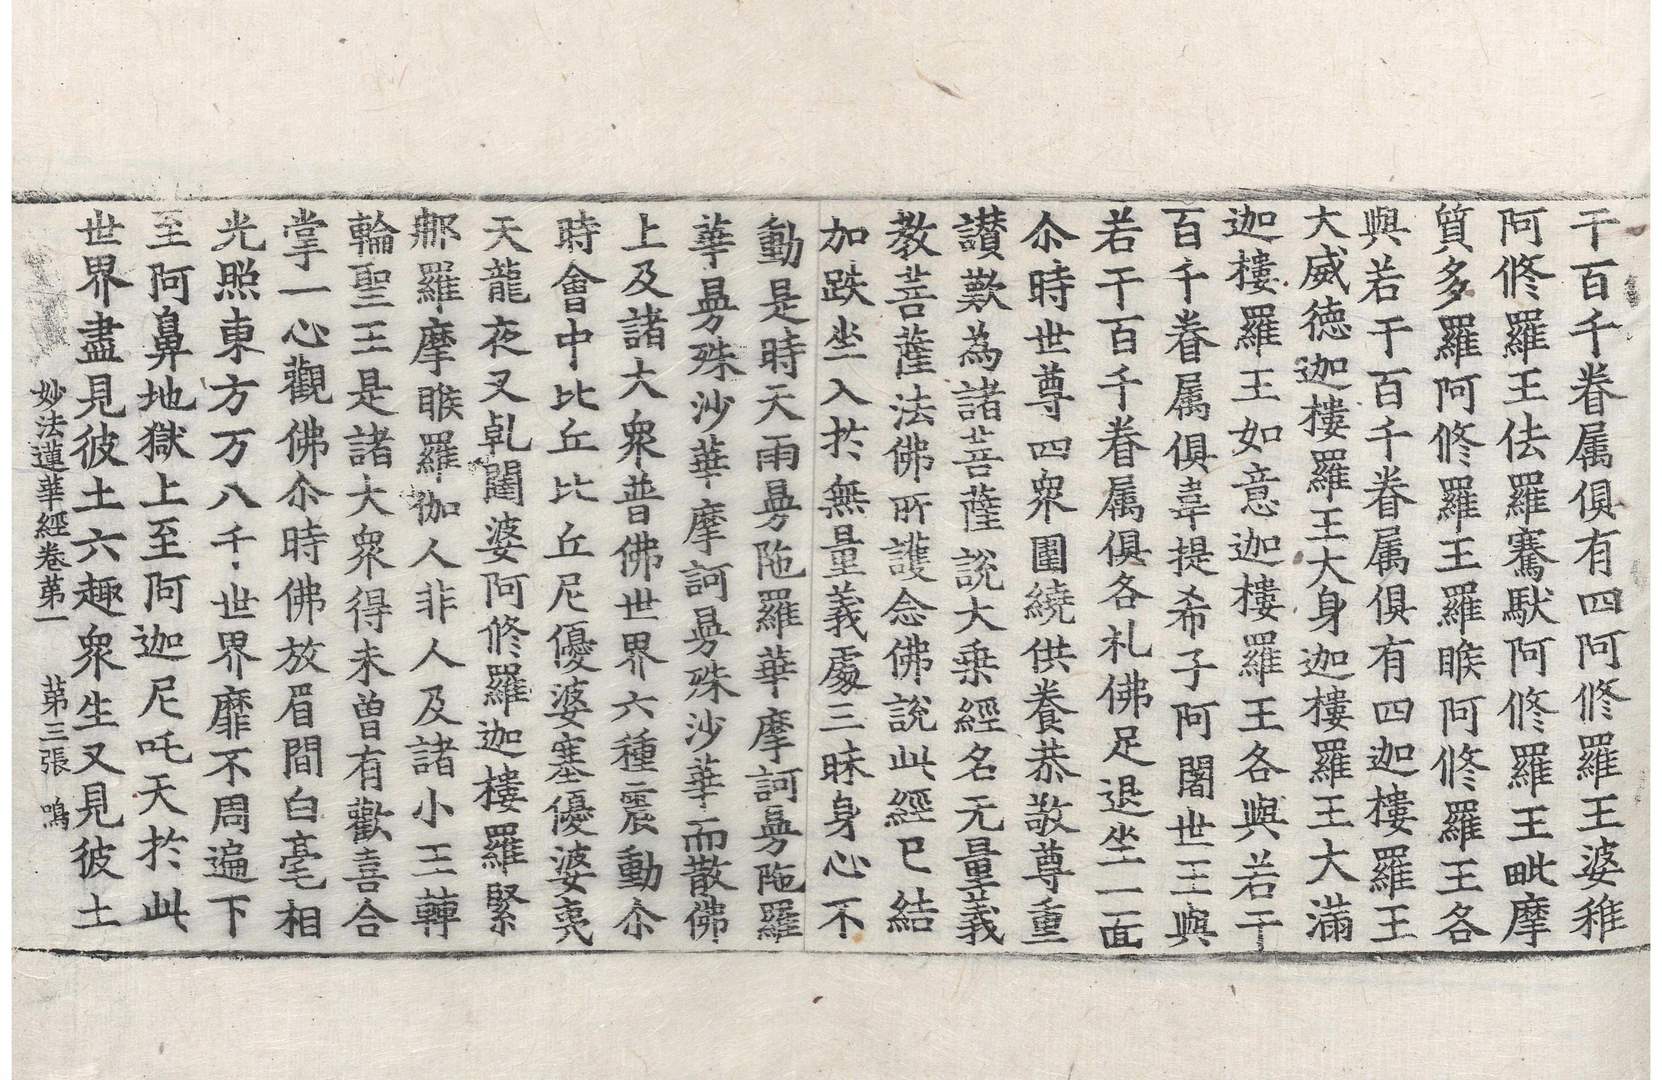 干百千眷属俱有四阿修羅王婆稚
阿修羅王佉羅騫馱阿修羅王毗摩
質多羅阿修羅王羅睺阿修羅王各
與若干百千眷属俱有四迦樓羅王
大威徳迦樓羅王大身迦樓羅王大滿
迦樓羅王如意迦樓羅王各與若干
百千眷属俱韋提希子阿闍世王與
若干百千眷属俱各礼佛足退坐一面
尒時世尊四衆圍繞供養恭敬尊重
讃歎為諸菩薩說大乗經名无量義
教菩薩法佛所護念佛說此經已結
加趺坐入扵無量義處三昧身心不
動是時天雨曼陁羅華摩訶曼陁羅
華曼殊沙華摩訶曼殊沙華而散佛
上及諸大衆普佛世界六種震動尒
時會中比丘比丘尼優婆塞優婆夷
天龍夜叉乹闥婆阿修羅迦樓羅緊
那羅摩睺羅伽人非人及諸小王轉
輪聖王是諸大衆得未曾有歡喜合
掌一心觀佛尒時佛放眉間白毫相
光照東方万八千世界靡不周遍下
至阿鼻地獄上至阿迦尼吒天扵此
世界盡見彼土六趣衆生又見彼土
妙法蓮華經卷苐一 苐三張 鳴